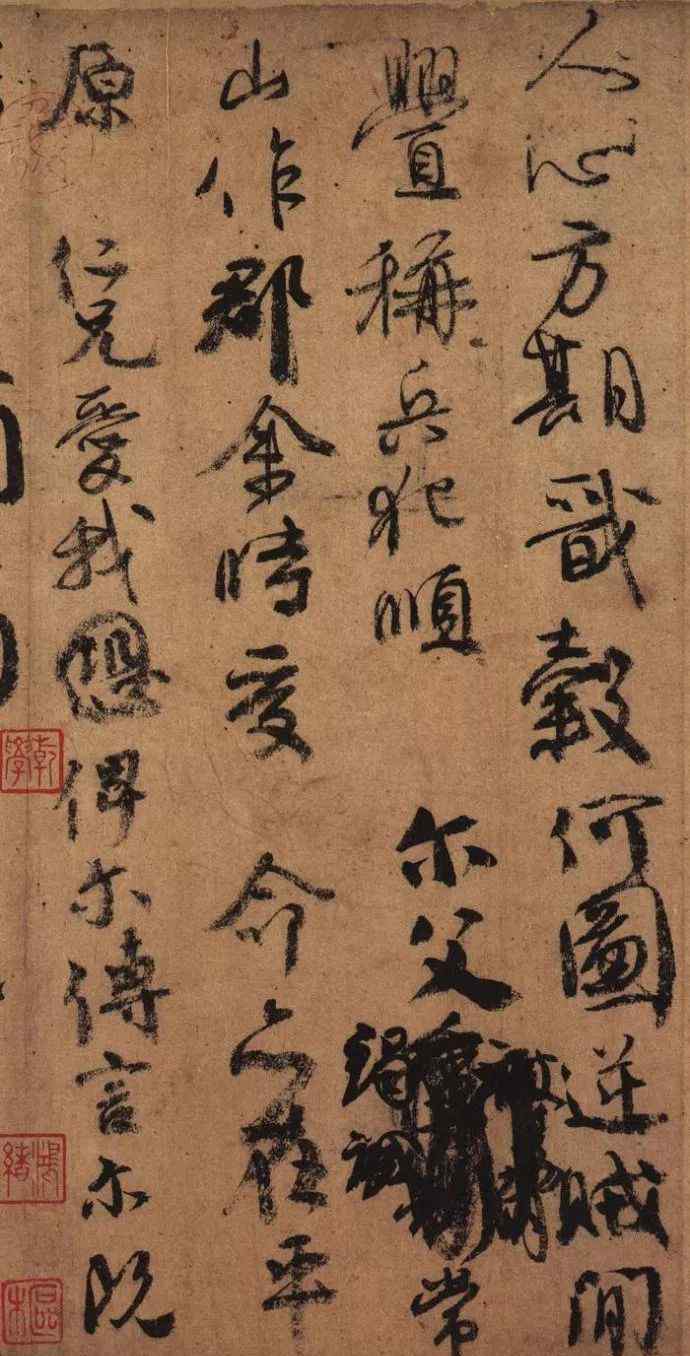 人心方期戩穀何圖逆賊間
釁稱兵犯順 尓父竭誠常
山作郡余時受 命亦在平
原 仁兄愛我俾尓傳言尓既
乾學
鴻緒